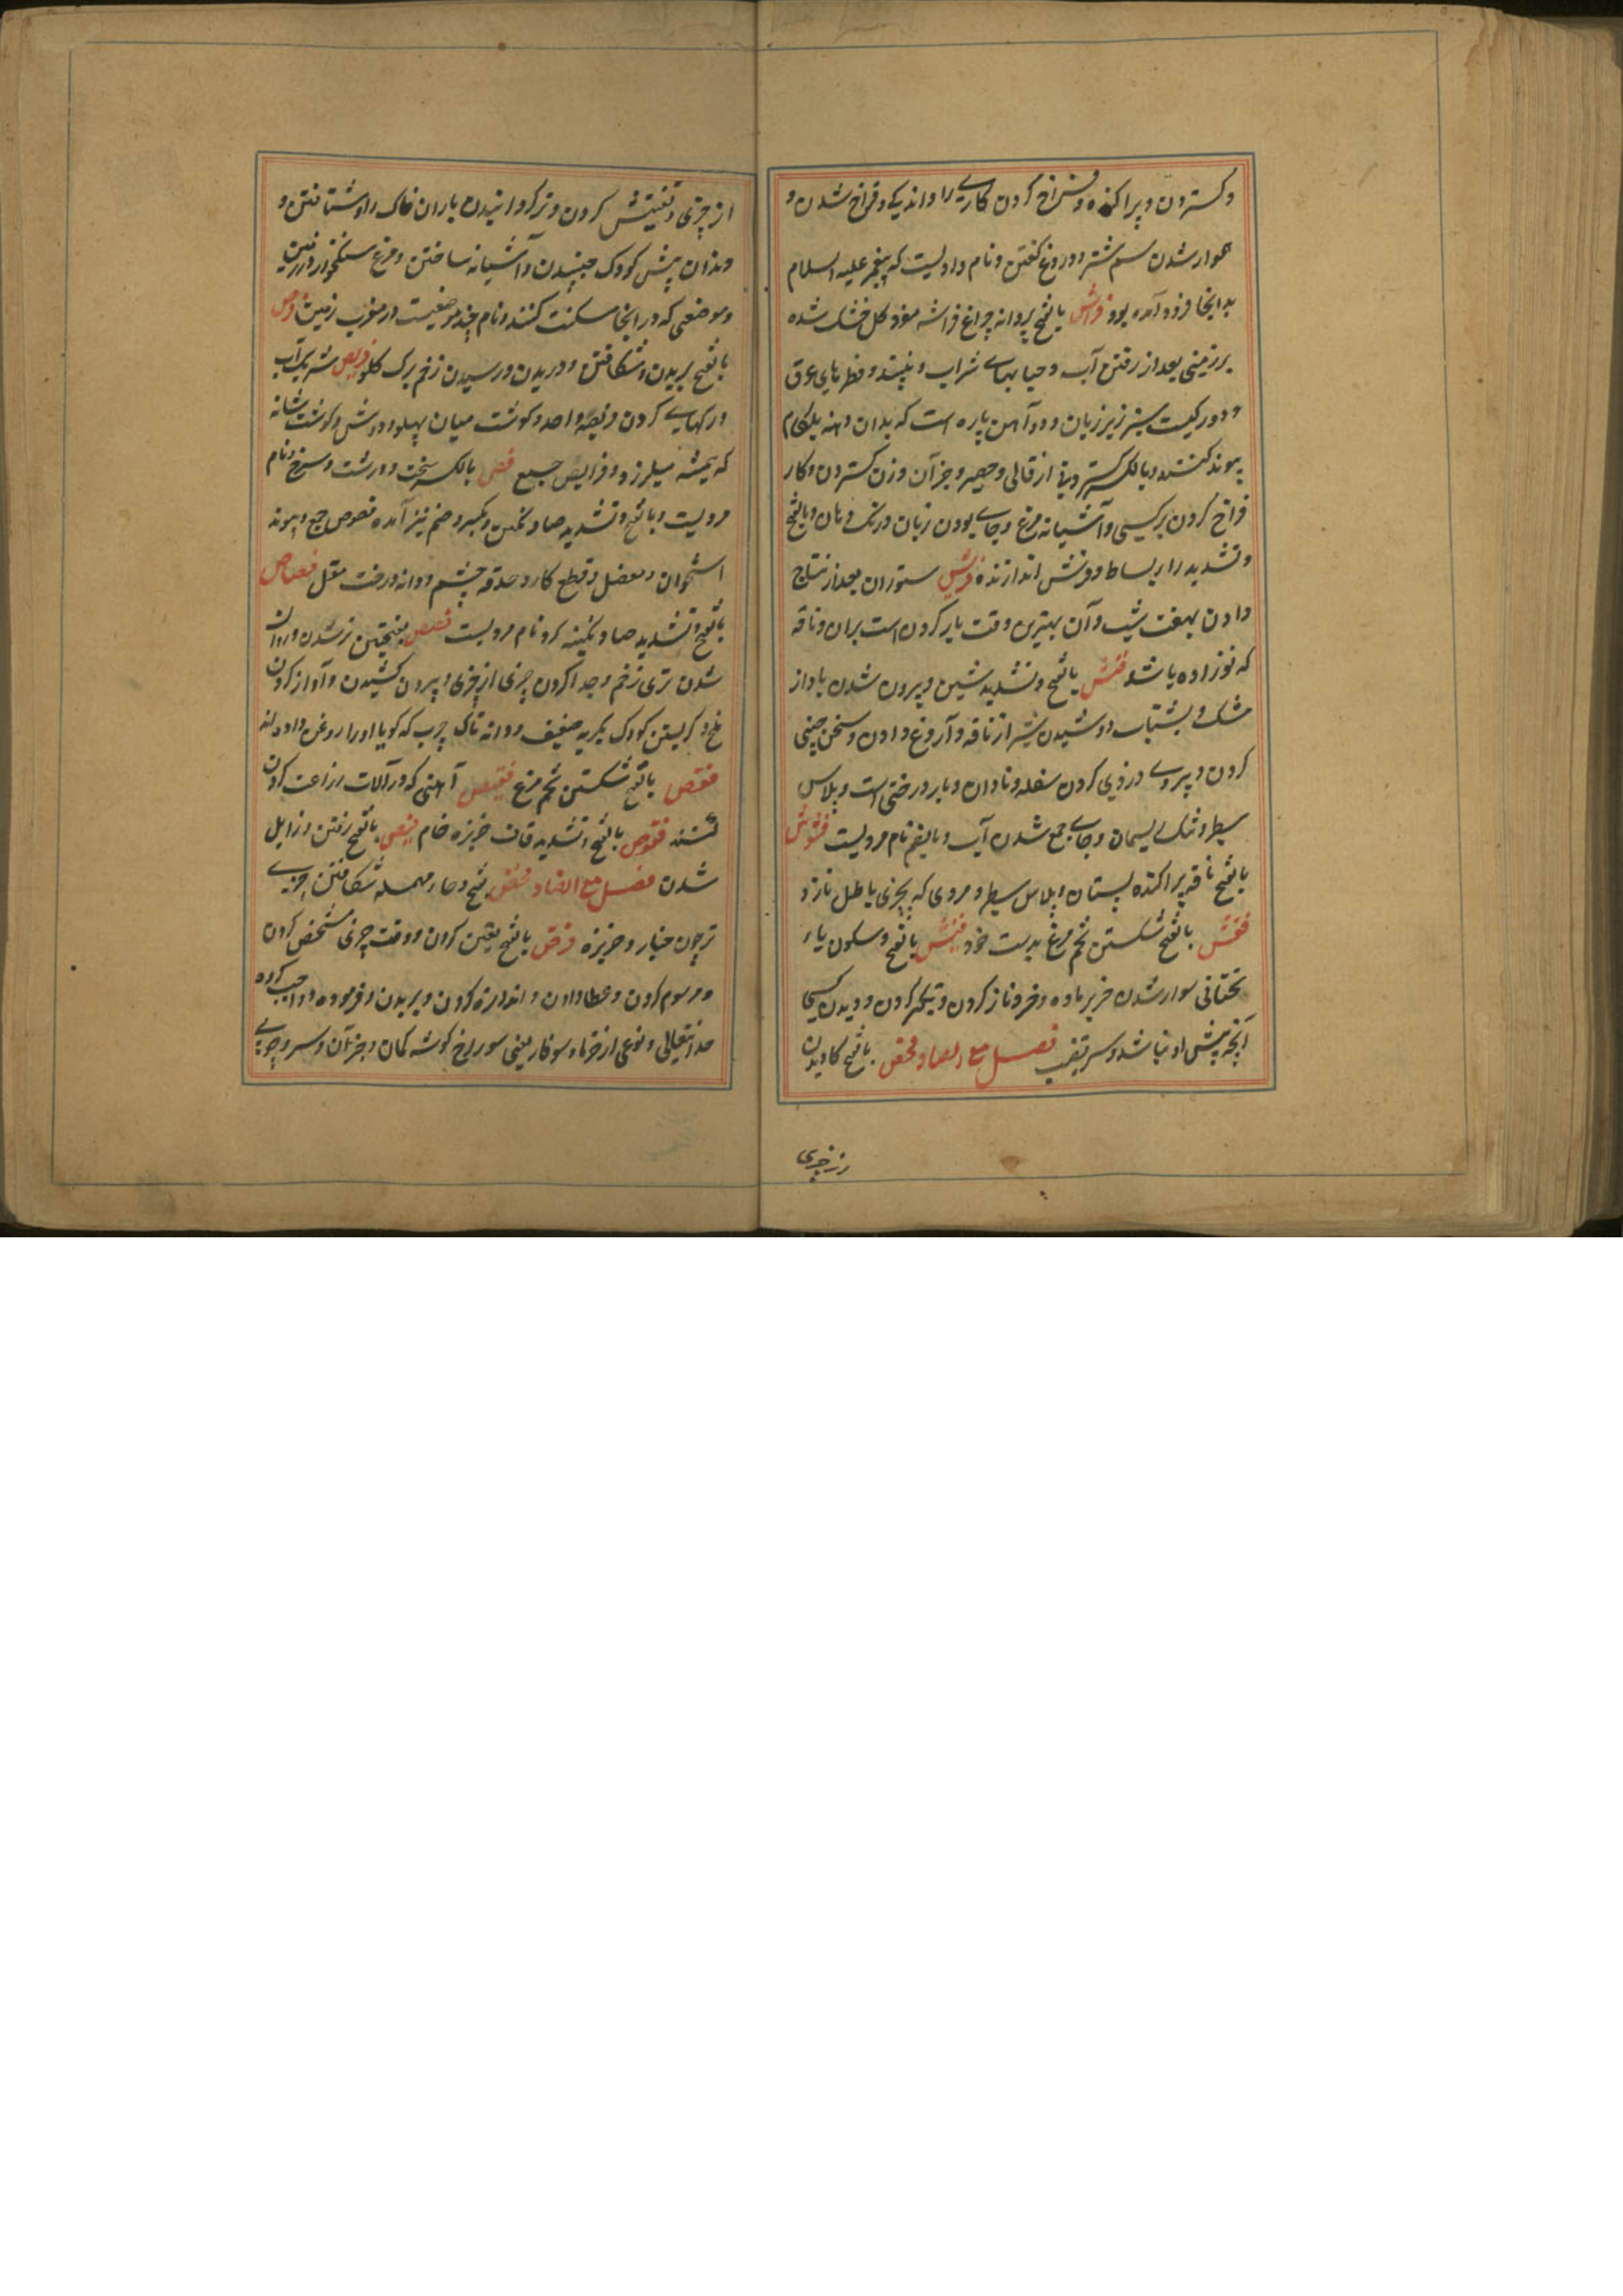 و کستردن و پراکنده و فراخ کردن کاری را و اندیکی و فراخ شدن و
هموار شدن سم شتر و دروغ کفتن و نام وادیست که پیغمبر علیه السلام
بدانجا فرود آمده بود فراش بالفتح پروانه چراغ فراشه مفرد کل خشک شده
بر زمین بعد از رفتن آب و حبابهای شراب و نبیذ و قطرهای عرق
و دو رک سبز زیر زبان و دو آهن پاره است که بدان دهنه بلکام
پیوند کنند و بالکسر کستردنی از قالی و حصیر و جز آن و زن کستردن و کار
فراخ کردن بر کسی و آشیانه مرغ و جای بودن زبان در تک دهان و بالفتح
و تشدید را بساط و فرش اندازنده فریش ستوران بعد از نتاج
دادن بهفت شب و آن بهترین وقت بار کردن است بران و ناقه
که نوزاده باشد فش بالفتح و تشدید شین بیرون شدن باد از
مشک و بشتاب دوشیدن شیر از ناقه و آروغ دادن و سخن چینی
کردن و پیروی دزدی کردن سفله و نادان و بار درختی است و پلاس
سطبر و تنک ریسمان و جای جمع شدن آب و بالضم نام مردیست فشوش
بالفتح ناقه پراکنده پستان و پلاس سطبر و مردی که بچیزی باطل نازد
فقش بالفتح شکستن تخم مرغ بدست خود فیش بالفتح و سکون یاء
تحتانی سوار شدن خر بر ماده و فخر و ناز کردن و تکبر کردن و دیدن کسی
آنچه پیش او نباشد و سر قضیب فصل مع الصاد فحص بالفتح کاویدن
از چیزی و تفتیش کردن و برکردانیدن باران خاک را و شتافتن و
دندان پیش کودک جنبیدن و آشیانه ساختن مرغ سنکخوار در زمین
و موضعی که در آنجا سکنت کنند و نام چند موضعیست در مغرب زمین فرص
بالفتح بریدن و شکافتن و دریدن و رسیدن زخم برک کلو فریص شریک آب
و رکهای کردن فریصه واحد و کوشت میان پهلو و دوش و کوشت شانه
که همیشه میلرزد و فرایص جمع فص بالکسر سخت و درشت و سرخ و نام
مردیست و بالفتح و تشدید صاد نکین و بکسر و ضم نیز آمده فصوص جمع و پیوند
استخوان و مفصل و قطع کار و حدقه چشم و دانه درخت مقل فصاص
بالفتح و تشدید صاد نکینه کر و نام مردیست فصص بفتحتین تر شدن و روان
شدن تری زخم و جدا کردن چیزی از چیزی و بیرون کشیدن و آواز کردن
ملخ و کریستن کودک بکریه ضعیف و دانه تاک چرب که کویا او را روغن داده اند
فقص بالفتح شکستن تخم مرغ فقیص آهنی که در آلات زراعت کردن
کنند فقوص بالفتح و تشدید قاف خربزه خام فیص بالفتح رفتن و زایل
شدن فصل مع الضاد فحض بفتح و حاء مهمله شکافتن چیزی
تر چون خیار و خربزه فرض بالفتح تعیین کردن و وقت چیزی مشخص کردن
و مرسوم کردن و عطا دادن و اندازه کردن و بریدن و فرموده و واجب کرده
خدا تعالی و نوعی از خرما و سوفار یعنی سوراخ کوشه کمان و جز آن و سپر و چوبی